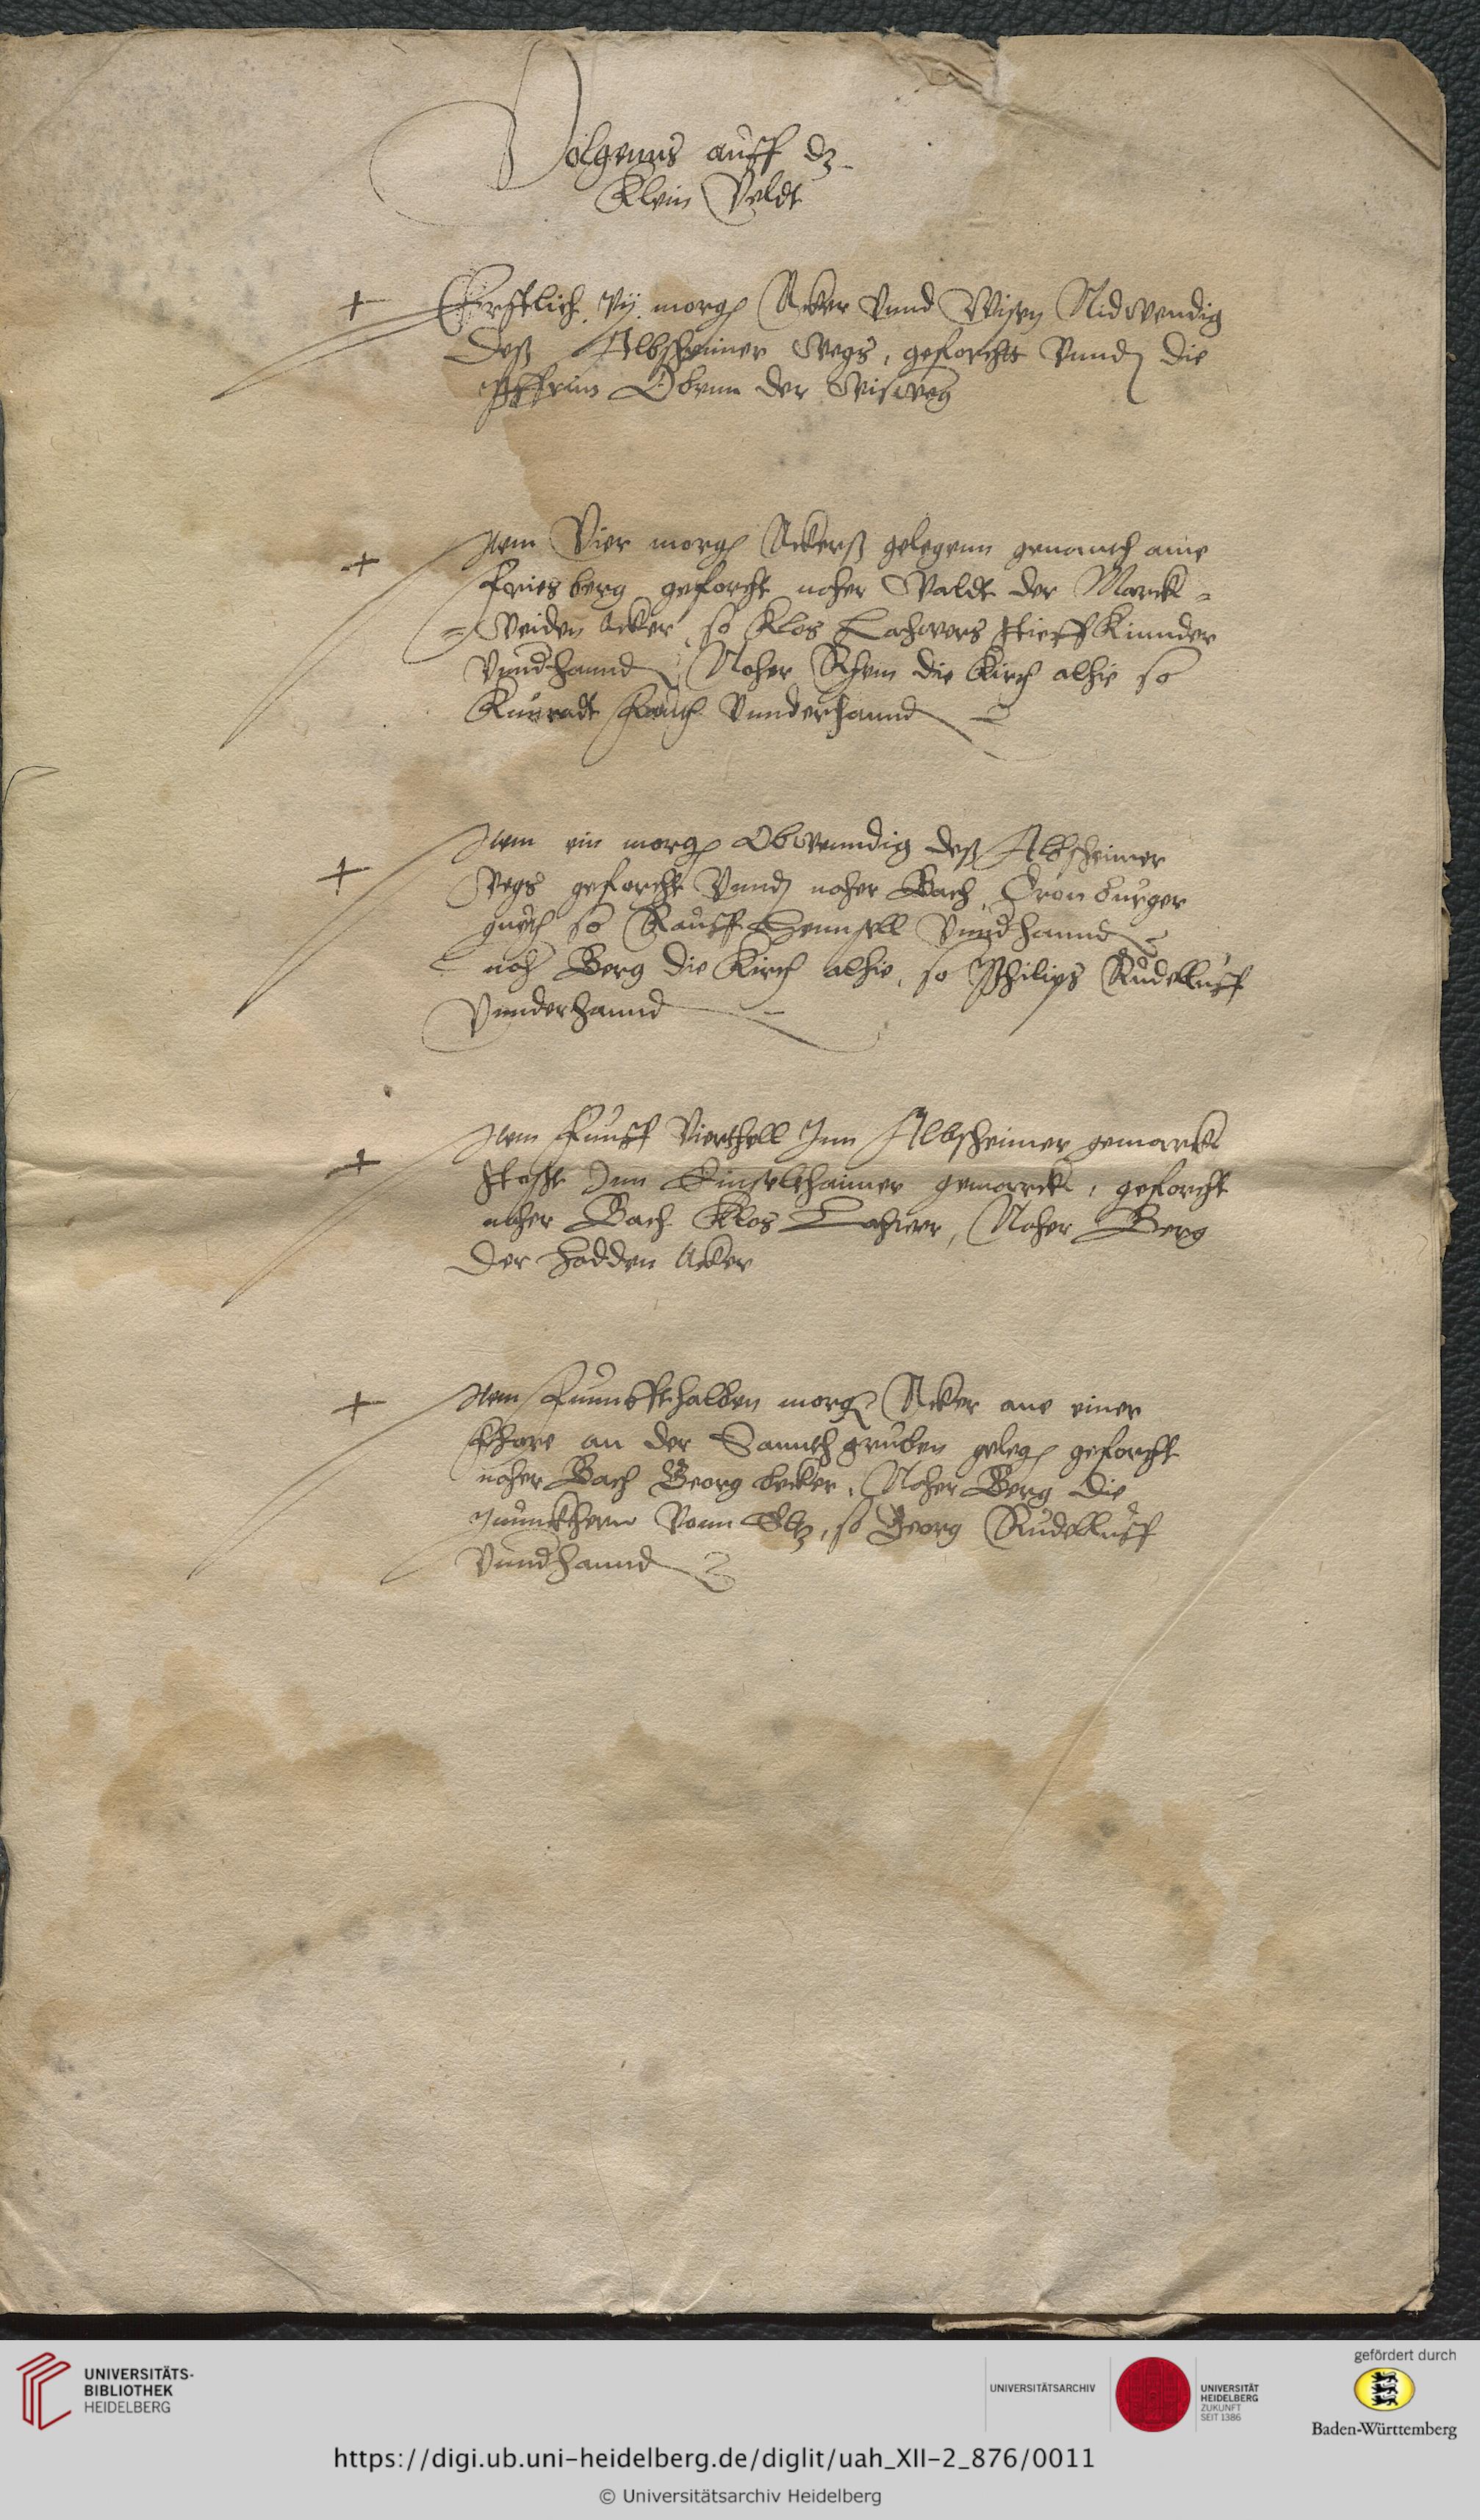 Volgenns auff dz
Klein Veldt
+ Erstlich vij morg Acker vnnd Wisen Nidwendig
deß Albsheimer Wegs, geforcht vnnd die
Pffrim Obenn der Wisweg
+ Item Vier morg Ackerß gelegenn genanth ame
Friesberg geforcht noher Waldt der Marck=
=Weiden Acker, so Klos Lachners stieff Kinnder
vnnd hannd Noher Rhein die Kirch alhie so
Kunradt vnnderhannd
+ Item ein morg Obwenndig deß Albsheimer
Wegs geforcht vnnd noher Bach, Cronburger
gueth so Rauff Hennsell vnnd hannd
noh Berg die Kirch alhie, so Philips Rudelluff
vnnderhannd
+ Item Funff Vierthell Inn Albsheimer gemarck
stosst Inn Einselthaimer gemarck, geforcht
noher Bach Klos Lachner, Noher Berg
der Hadden Acker
+ Item Funnffthalben morg Acker ane einer
an der Sannth gruben geleg geforcht
noher Bach Georg becker, Noher Berg die
Junckhern Vonn Eltz, so Georg Rudelluff
vnnd hannd
UNIVERSITÄTS-
BIBLIOTHEK
HEIDELBERG
UNIVERSITÄTSARCHIV
UNIVERSITÄT
HEIDELBERG
ZUKUNFT
SEIT 1386
gefördert durch
Baden-Württemberg
https://digi.ub.uni-heidelberg.de/diglit/uah_XII-2_876/0011
© Universitätsarchiv Heidelberg